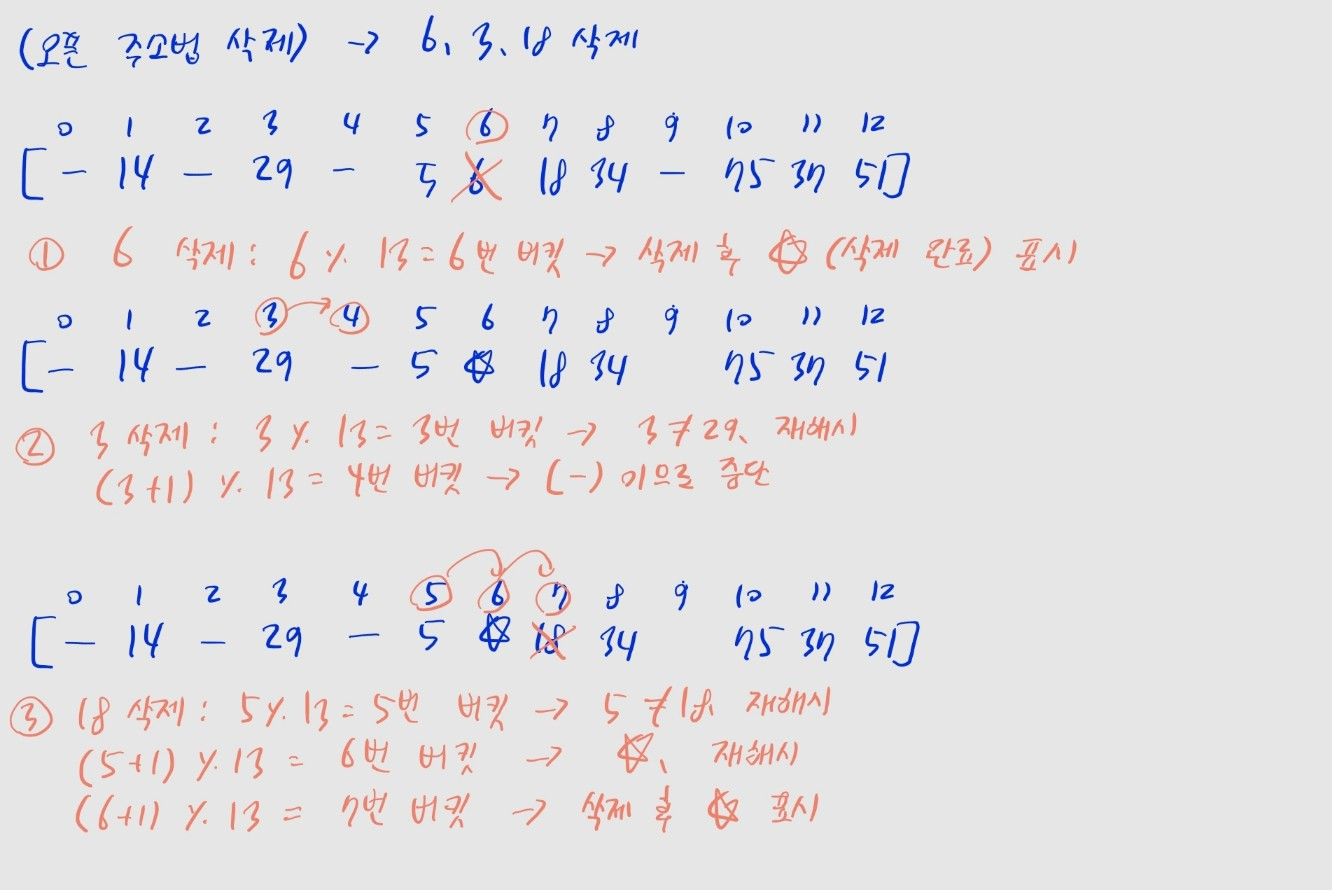 (오픈 주소법 삭제) → 6, 3, 18 삭제
0 1 2 3 4 5 6 7 8 9 10 11 12
[ - 14 - 29 - 5 6 18 34 - 75 37 51]
① 6 삭제: 6 % 13 = 6번 버킷 → 삭제 후 ☆ (삭제 완료) 표시
0 1 2 3 4 5 6 7 8 9 10 11 12
[ - 14 - 29 - 5 ☆ 18 34 75 37 51
② 3 삭제 : 3 % 13 = 3번 버킷 → 3 ≠ 29, 재해시
(3+1) % 13 = 4번 버킷 → (-) 이으로 중단
0 1 2 3 4 5 6 7 8 9 10 11 12
[ - 14 - 29 - 5 ☆ 18 34 75 37 51]
③ 18 삭제 : 5 % 13 = 5번 버킷 → 5 ≠ 18, 재해시
(5+1) % 13 = 6번 버킷 → ☆, 재해시
(6+1) % 13 = 7번 버킷 → 삭제 후 ☆ 표시